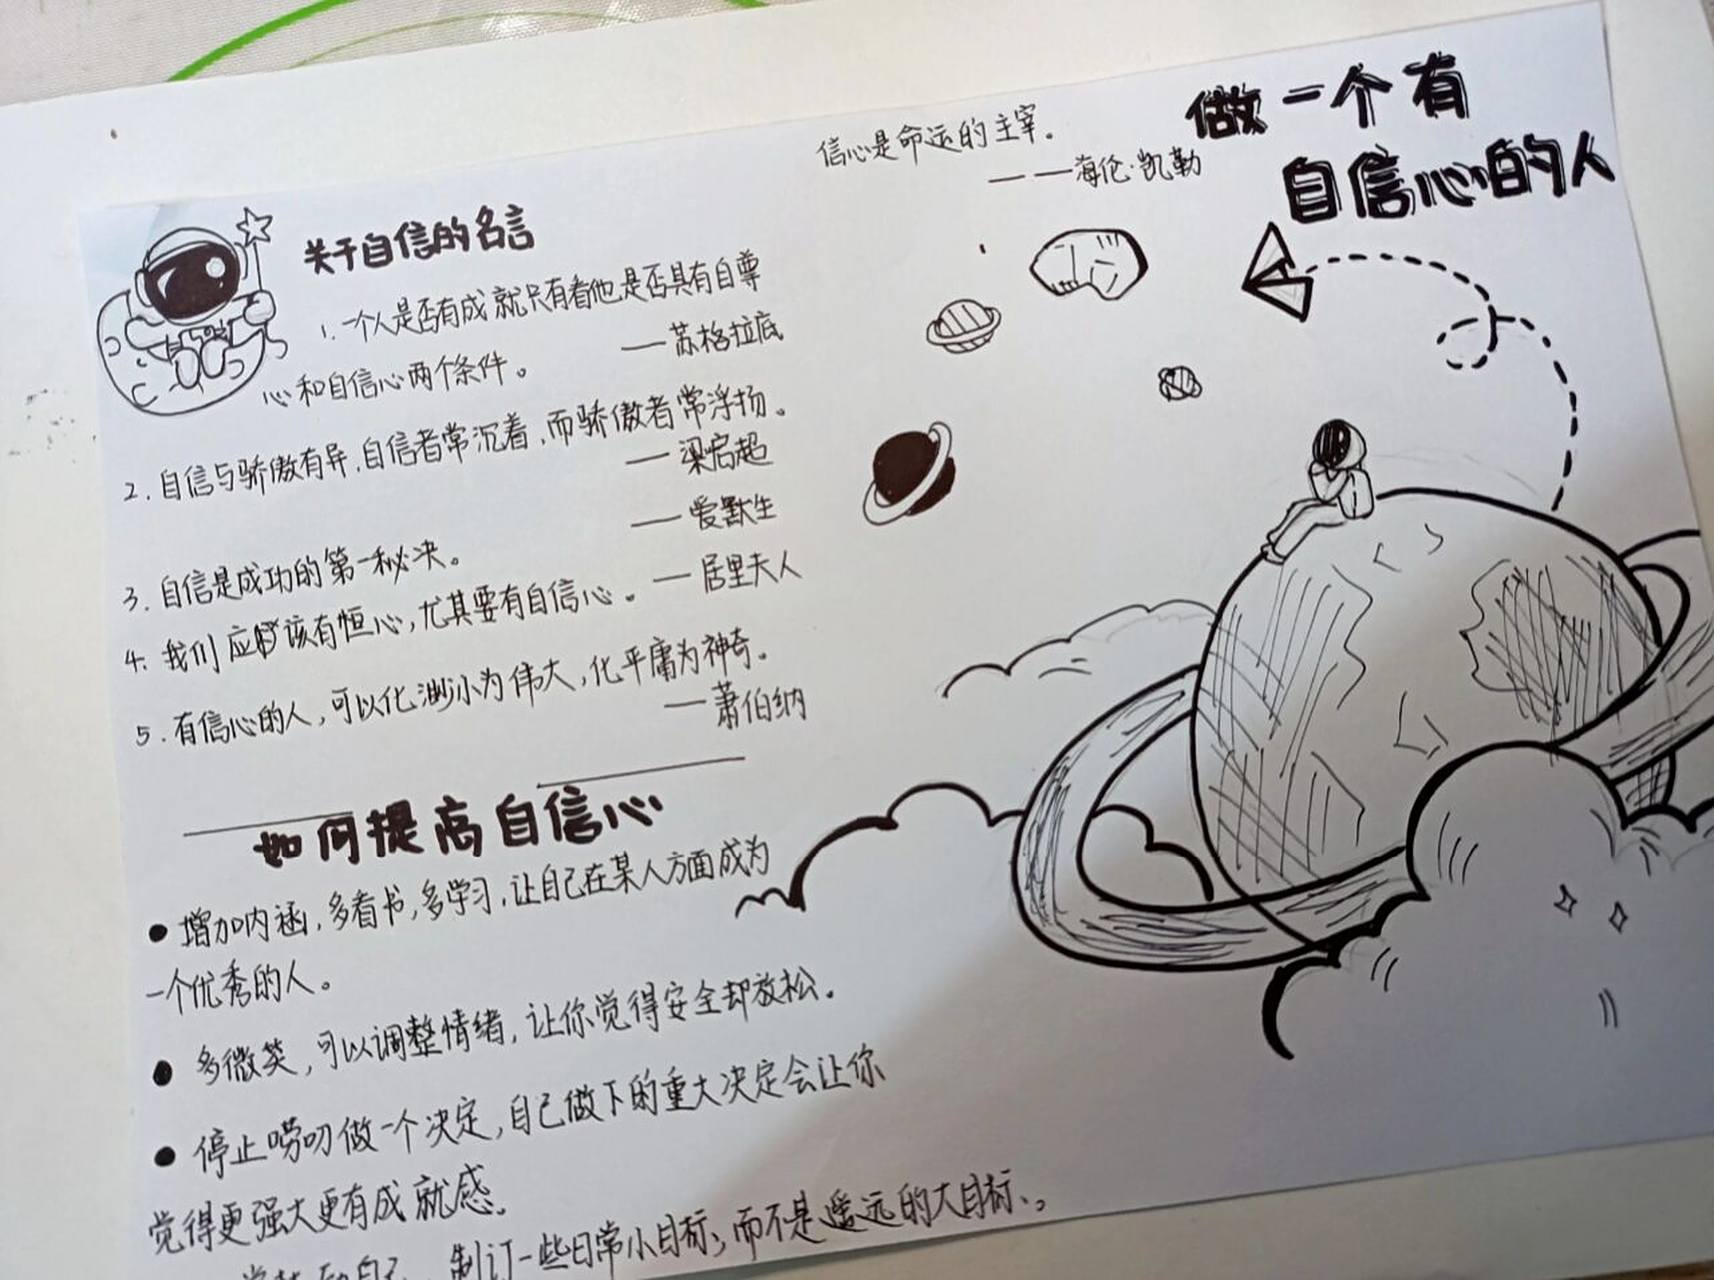 做一个有
自信心的人
信心是命运的主宰。
——海伦·凯勒
关于自信的名言
1.一个人是否有成就只有看他是否具有自尊
心和自信心两个条件。
—苏格拉底
2.自信与骄傲有异,自信者常沉着,而骄傲者常浮扬。
—梁启超
3.自信是成功的第一秘决。
—爱默生
4.我们应该有恒心,尤其要有自信心。
—居里夫人
5.有信心的人,可以化渺小为伟大,化平庸为神奇。
—萧伯纳
如何提高自信心
●增加内涵,多看书,多学习,让自己在某人方面成为
一个优秀的人。
●多微笑,可以调整情绪,让你觉得安全却放松。
●停止唠叨做一个决定,自己做下的重大决定会让你
觉得更强大更有成就感。
自己,制订一些日常小目标,而不是遥远的大目标、。